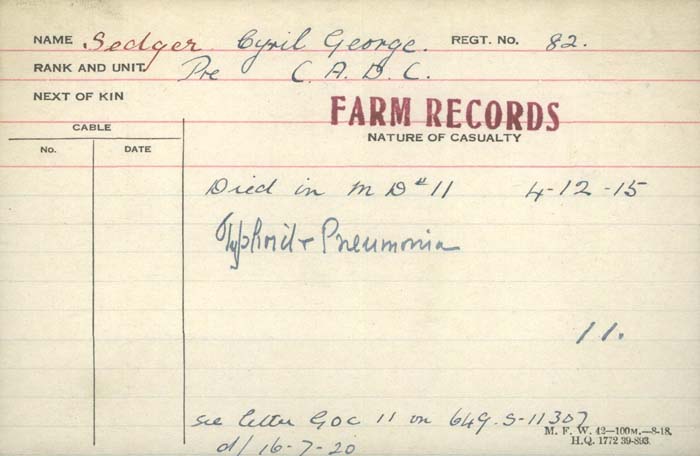 NAME Sedger Cyril George. REGT. NO. 82.
RANK AND UNIT Pte C. A. D. C.
NEXT OF KIN
FARM RECORDS
CABLE
NATURE OF CASUALTY
No. DATE
Died in M D # 11 4-12-15
Typhoid + Pneumonia
11.
see letter GOC 11 on 649-S-11307
d/ 16-7-20
M. F. W. 42—100M.—8-18.
H.Q. 1772 39-893.